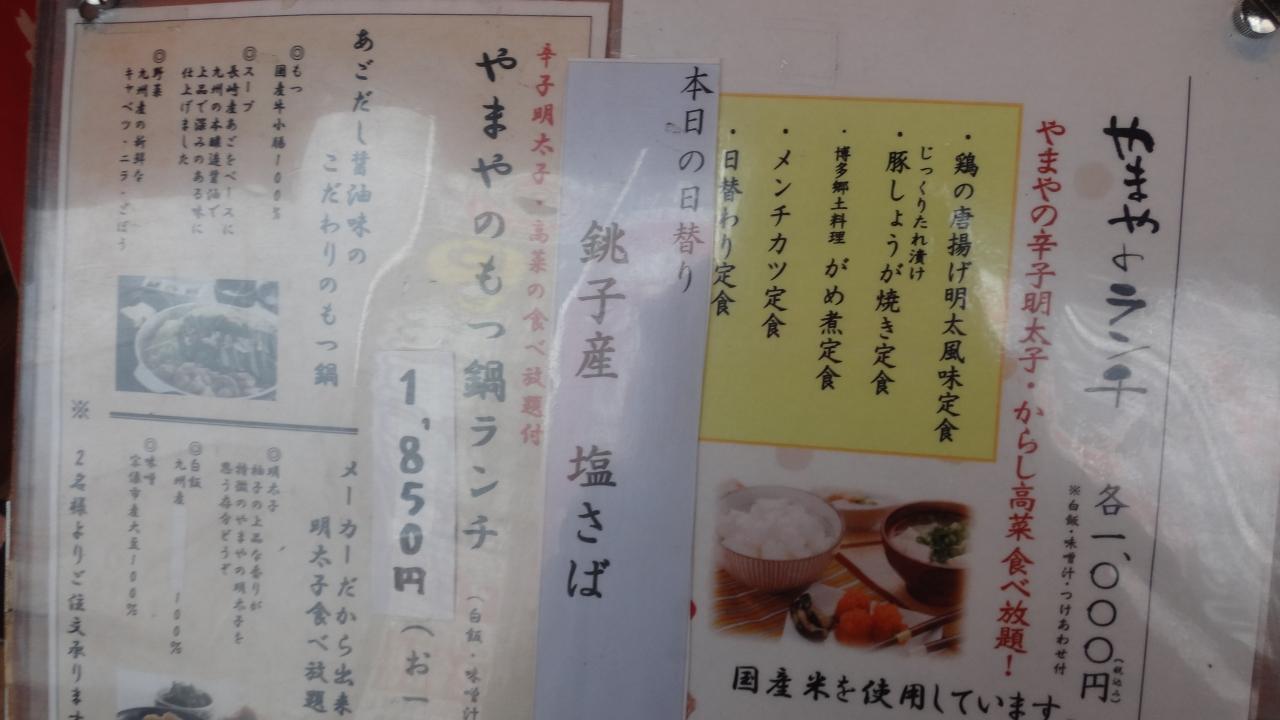 やまやのランチ
各一、〇〇〇円(税込み)
※白飯・味噌汁・つけあわせ付
やまやの辛子明太子・からし高菜食べ放題！
・鶏の唐揚げ明太風味定食
じっくりたれ漬け
・豚しょうが焼き定食
・博多郷土料理 がめ煮定食
・メンチカツ定食
・日替わり定食
国産米を使用しています
本日の日替り
銚子産 塩さば
辛子明太子・高菜の食べ放題付
やまやのもつ鍋ランチ
(白飯・味噌汁
1,850円(お一
あごだし醤油味の
こだわりのもつ鍋
◎もつ
国産牛小腸100%
◎スープ
長崎産あごをベースに
九州の本醸造醤油で
上品で深みのある味に
仕上げました
◎野菜
九州産の新鮮な
キャベツ・ニラ・ごぼう
メーカーだから出来
明太子食べ放題
◎明太子
柚子の上品な香りが
特徴のやまやの明太子を
思う存分どうぞ
◎白飯
九州産 100%
◎味噌
国産大豆100%
※2名様よりご注文承ります